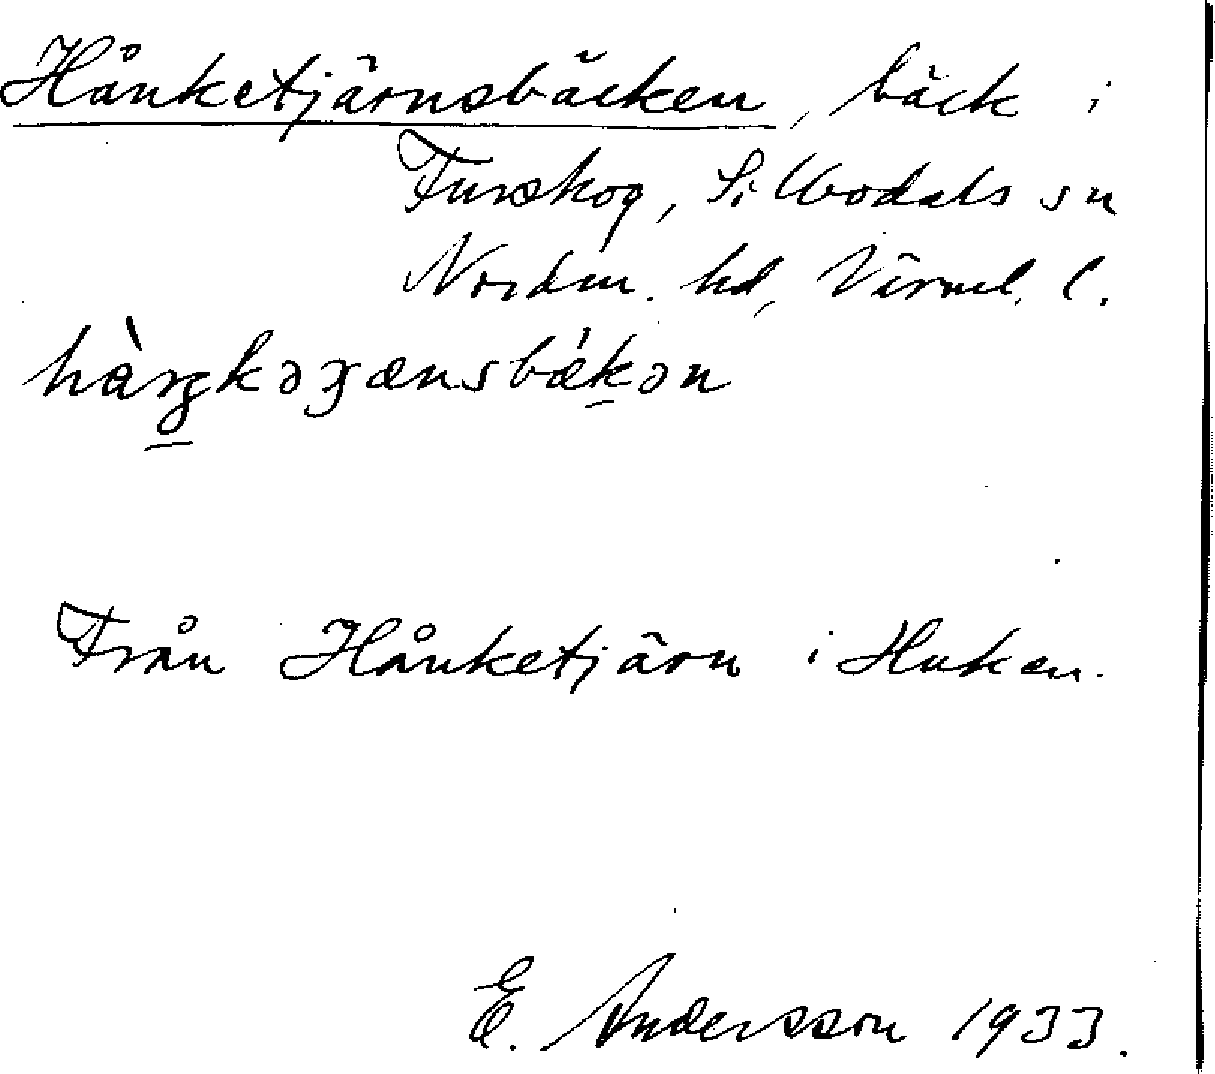 Hånketjärnsbäcken, bäck i
Furskog, Silbodals sn
Nordm. hd, Värml. l.
Från Hånketjärn i Huken.
E. Andersson 1933.